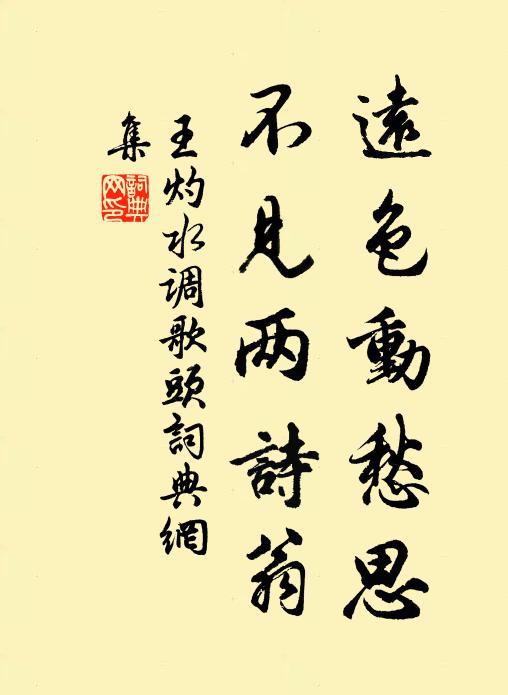 遠色動愁思
不見两詩翁
王灼水调歌頭詞典網
集
詞典网印